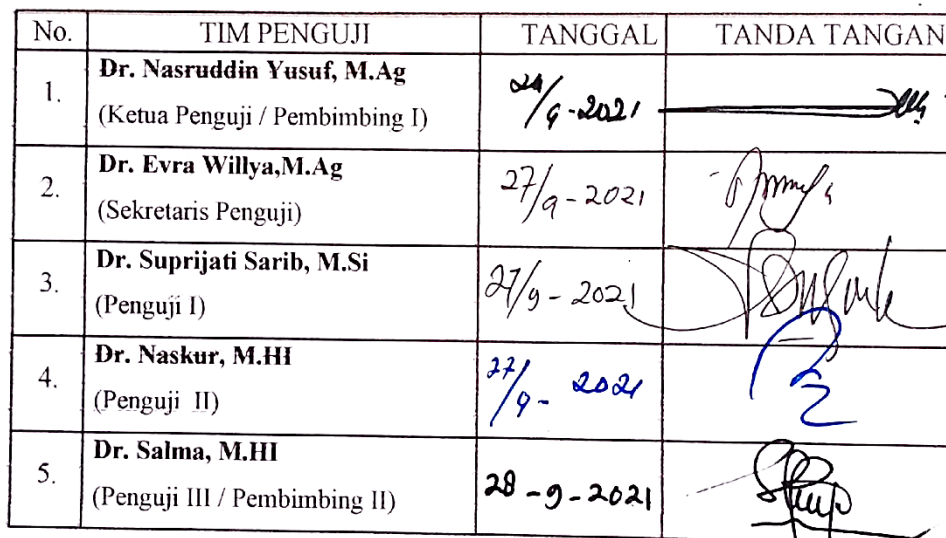 No. TIM PENGUJI TANGGAL TANDA TANGAN
1. Dr. Nasruddin Yusuf, M.Ag
(Ketua Penguji / Pembimbing I) /9-2021
2. Dr. Evra Willya,M.Ag
(Sekretaris Penguji) 27/9-2021
3. Dr. Suprijati Sarib, M.Si
(Penguji I) 27/9-2021
4. Dr. Naskur, M.HI
(Penguji II) 27/9-2021
5. Dr. Salma, M.HI
(Penguji III / Pembimbing II) 28-9-2021